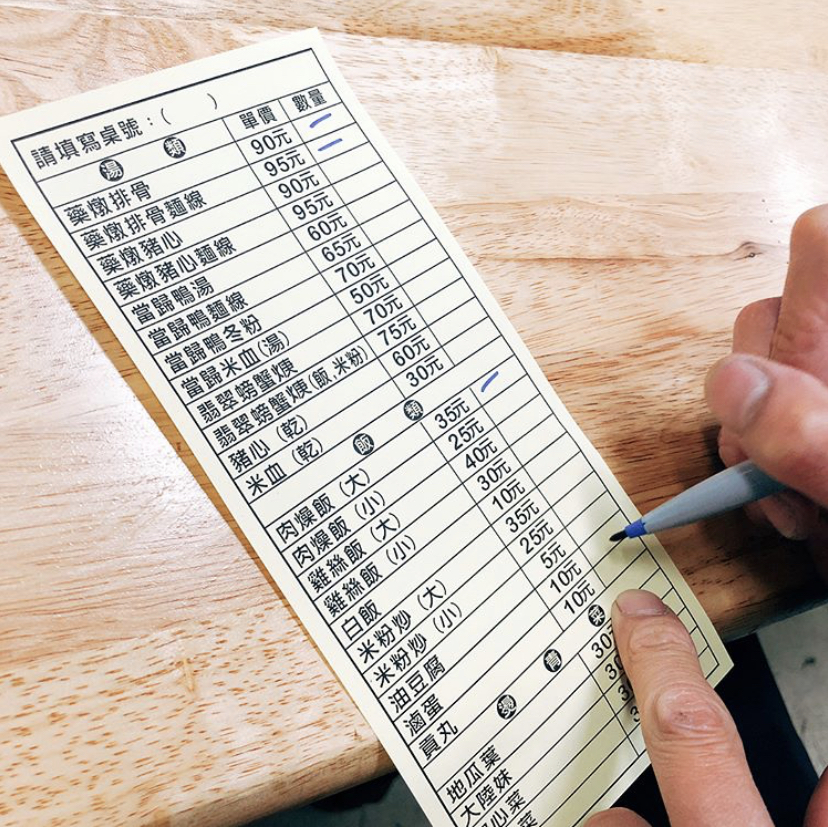 請填寫桌號：(　) 單價 數量
湯類
藥燉排骨 90元
藥燉排骨麵線 95元
藥燉豬心 90元
藥燉豬心麵線 95元
當歸鴨湯 60元
當歸鴨麵線 65元
當歸鴨冬粉 70元
當歸米血(湯) 50元
翡翠螃蟹焿 70元
翡翠螃蟹焿(飯.米粉) 75元
豬心(乾) 60元
米血(乾) 30元
飯類
肉燥飯(大) 35元
肉燥飯(小) 25元
雞絲飯(大) 40元
雞絲飯(小) 30元
白飯 10元
米粉炒(大) 35元
米粉炒(小) 25元
油豆腐 5元
滷蛋 10元
貢丸 10元
燙青菜
地瓜葉 30
大陸妹 3
心菜 3
菜 3